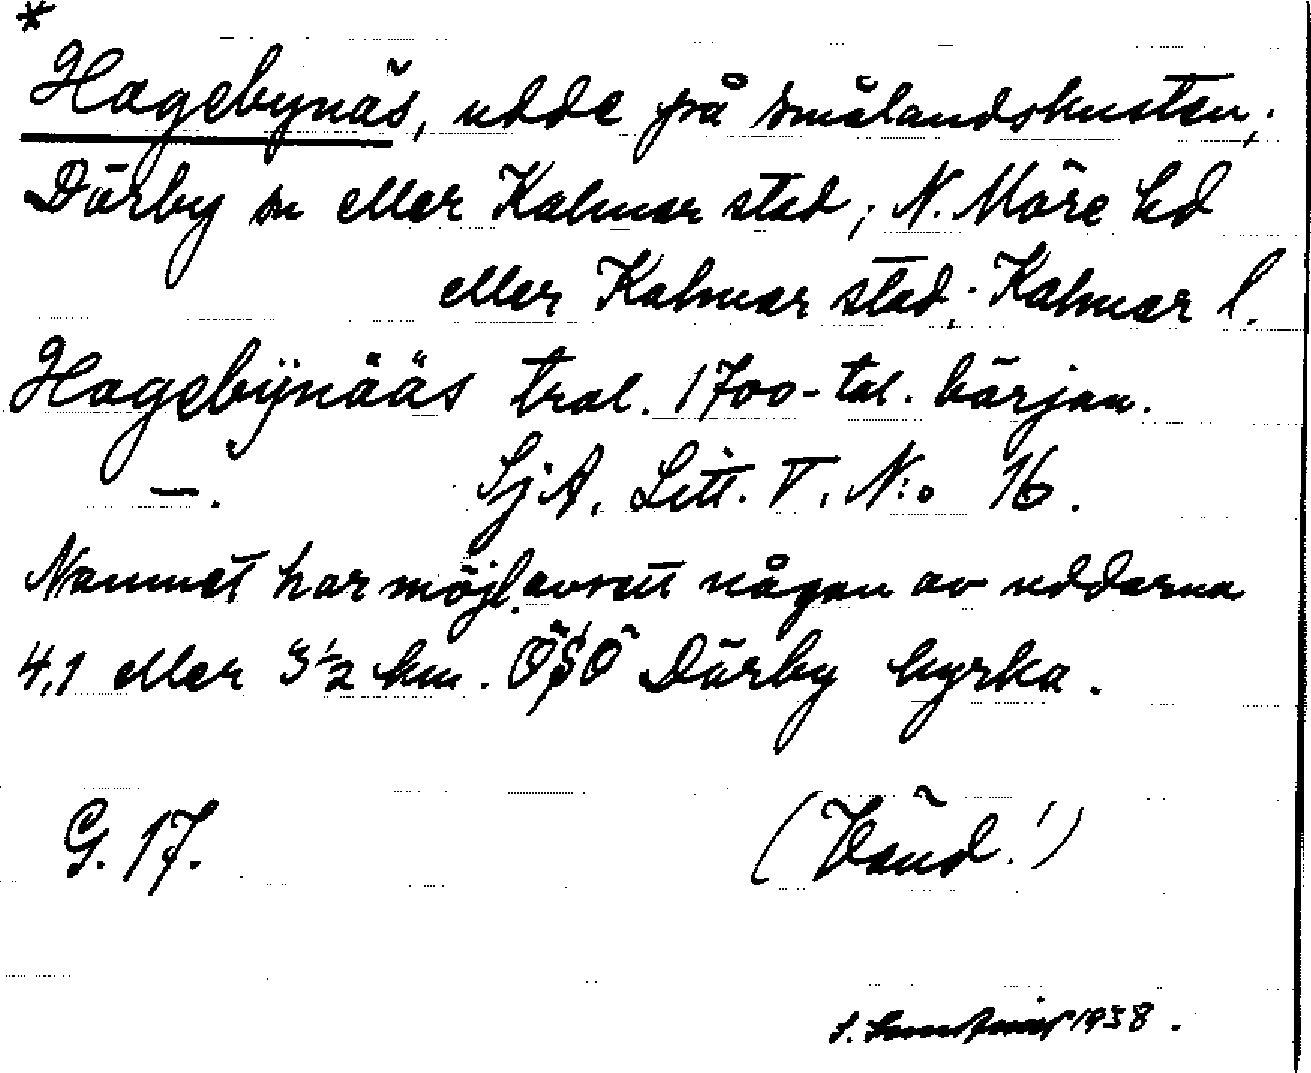 *
Hagebynäs, udde på smålandskusten,
Dörby sn eller Kalmar stad; N. Möre hd
eller Kalmar stad; Kalmar l.
Hagebÿnääs trol. 1700-tal. början.
—. SjA. Litt. T. N:o 16.
Namnet har möjl. avsett någon av uddarna
4,1 eller 3½ km. ÖSÖ Dörby kyrka.
G. 17. (Vänd!)
1938.